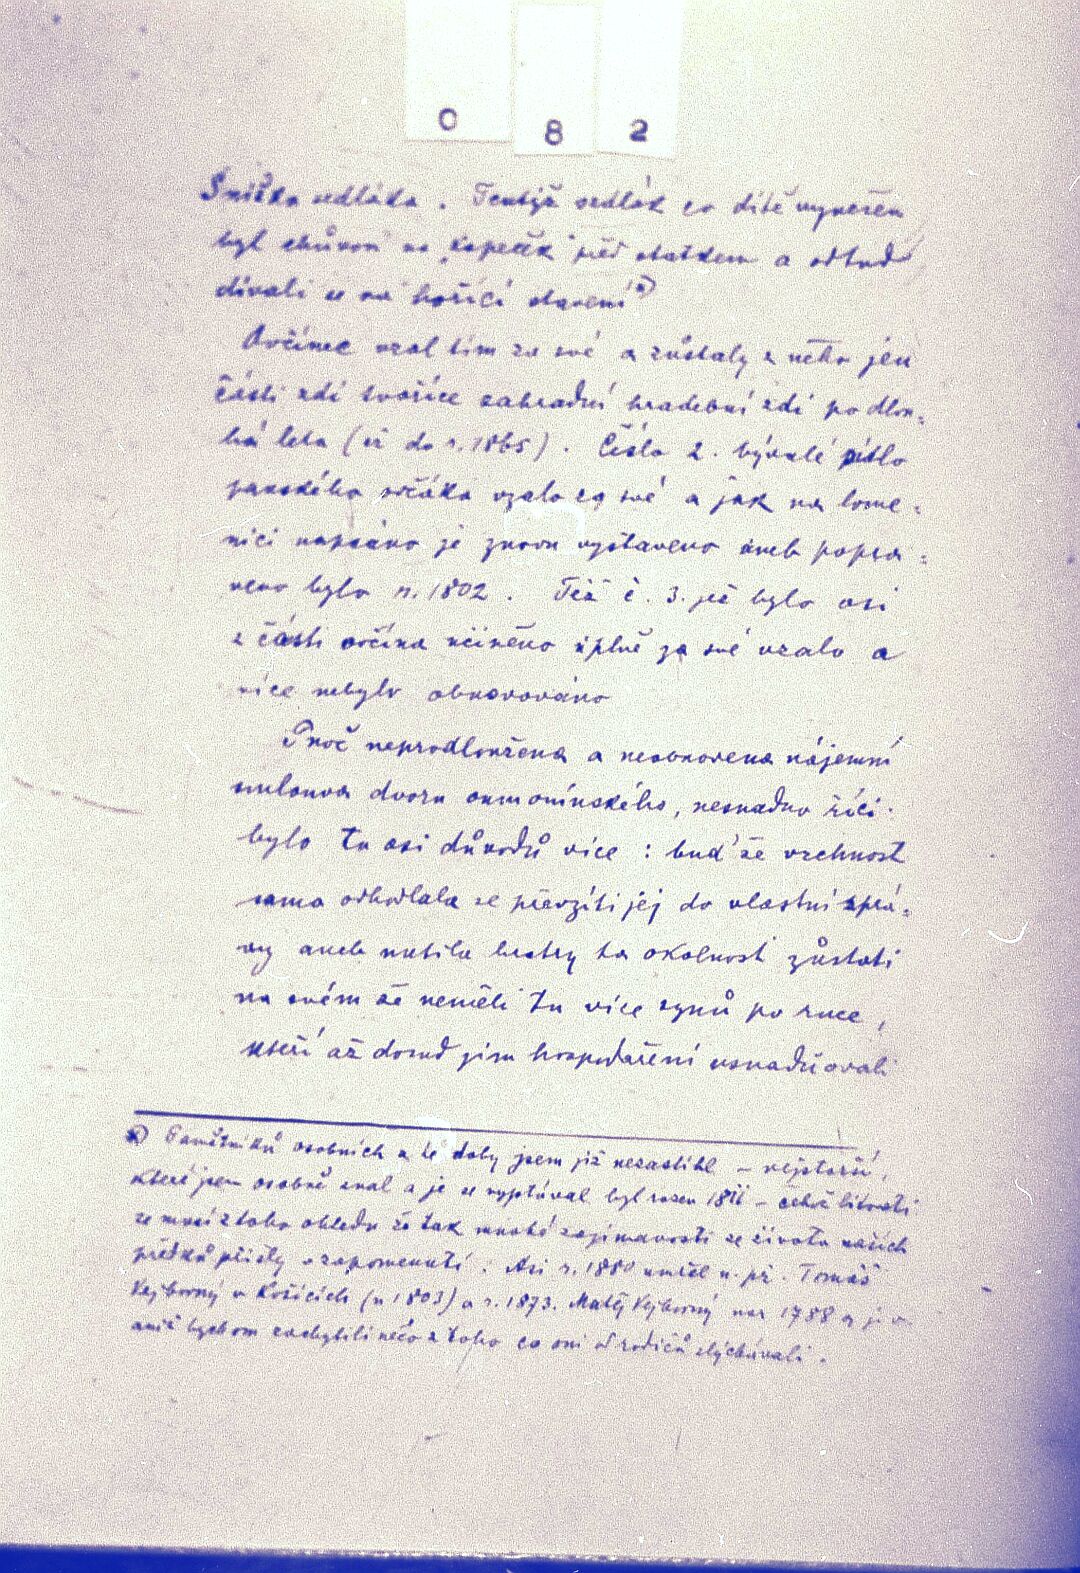 0 8 2
Šmížka sedláka. Tentýž sedlák co dítě vynešen
byl chůvou na „kopeček" před statkem a odtud
dívali se na hořící stavení *)
Ovčinec vzal tím za své a zůstaly z něho jen
části zdí tvoříce zahradní hradební zdi po dlou=
há léta (až do r. 1865). Číslo 2. bývalé sídlo
panského ovčáka vzalo za své a jak na lome=
nici napsáno je znovu vystaveno aneb popra=
veno bylo r. 1802. Též č. 3. jež bylo asi
z části ovčína úplně za své vzalo a
více nebylo obnovováno
Proč neprodloužena a neobnovena nájemní
smlouva dvoru nesnadno říci.
bylo tu asi důvodů více: buď že vrchnost
sama odhodlala se převzíti jej do vlastní sprá=
vy aneb nutila bratry ta okolnost zůstati
na svém že neměli tu více synů po ruce,
kteří až dosud jim hospodaření usnadňovali
*) Pamětníků osobních z té doby jsem již nezastihl – nejstarší,
které jsem osobně znal a je se vyptával byl rozen 1811 – čehož litovati
se musí z toho ohledu že tak mnohé zajímavosti ze života našich
předků přišly v zapomenutí. Asi r. 1880 umřel n. př. Tomáš
Vejborný v Košicích (n 1803) a r. 1873. Matěj Vejborný nar 1788 a
aniž bychom zachytili něco z toho co oni od rodičů slýchávali.